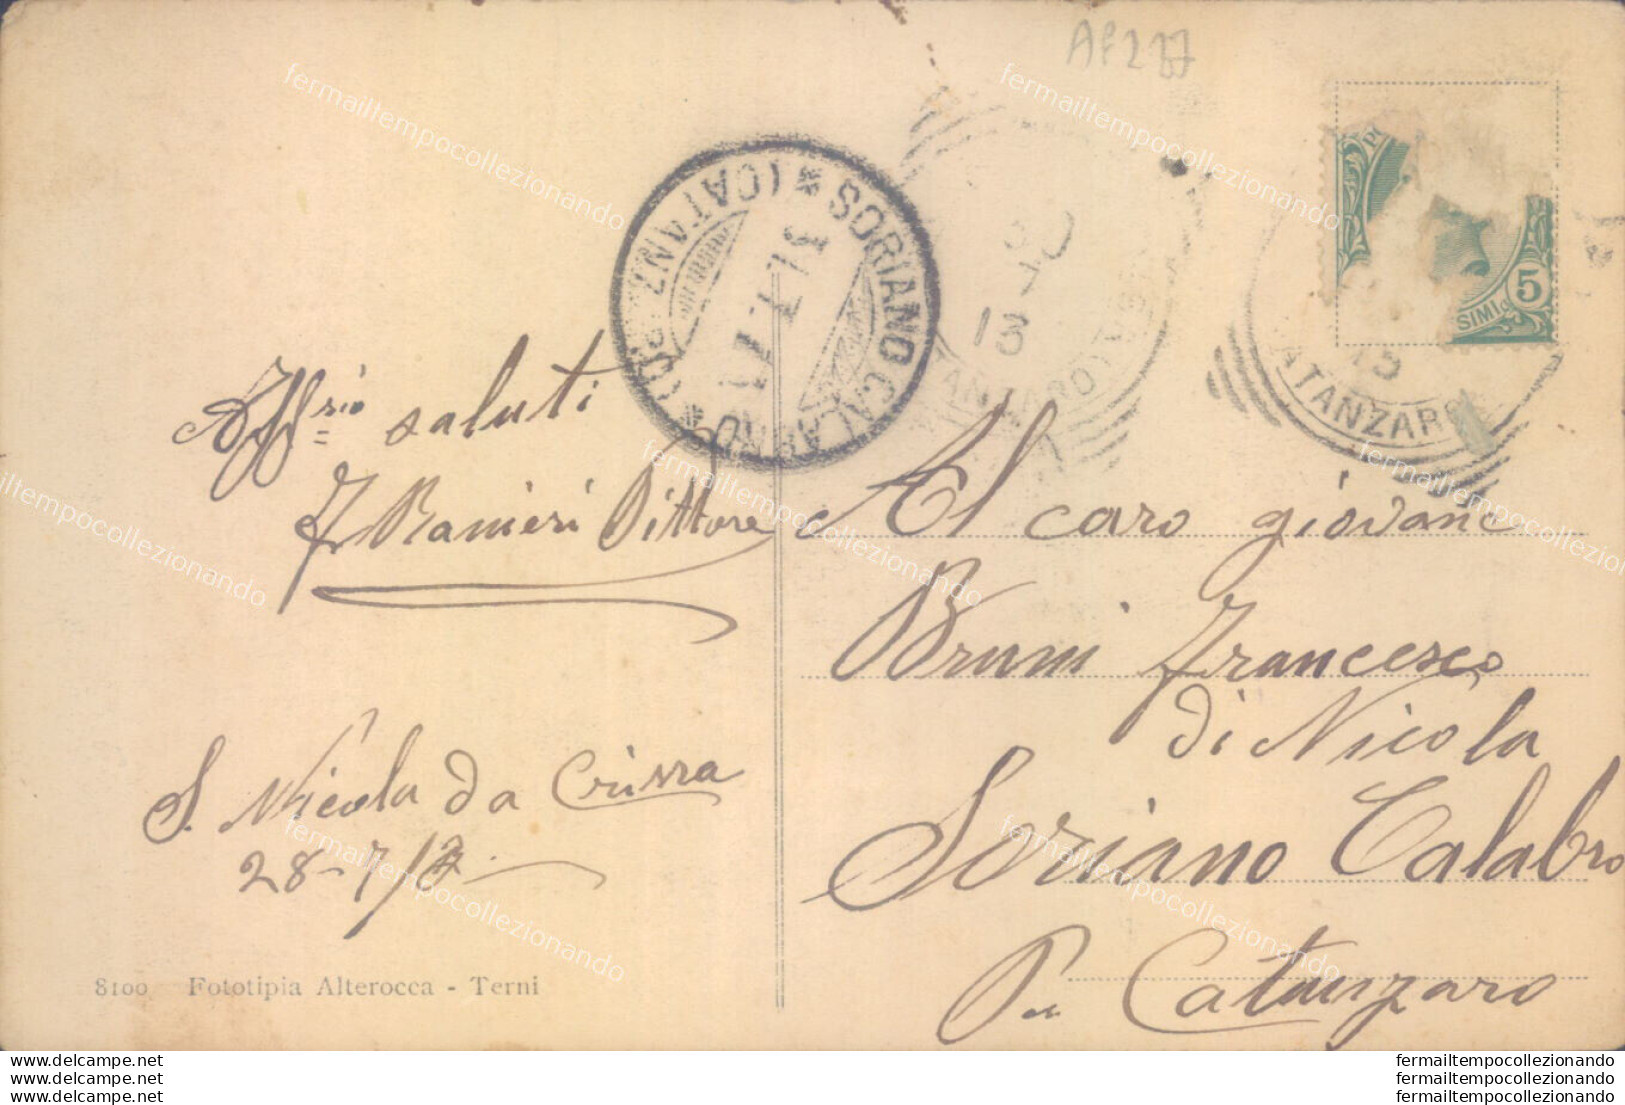 AF277
5
SIMI
SORIANO CALABRO
(CATANZ
30
7
13
CATANZARO
13
Aff.rio saluti
F Ranieri Pittore
Al caro giovane
Bruni Francesco
di Nicola
Soriano Calabro
Catanzaro
S. Nicola da Crissa
28-7/
8100 Fototipia Alterocca - Terni
fermailtempocollezionando
www.delcampe.net
www.delcampe.net
www.delcampe.net
fermailtempocollezionando
fermailtempocollezionando
fermailtempocollezionando